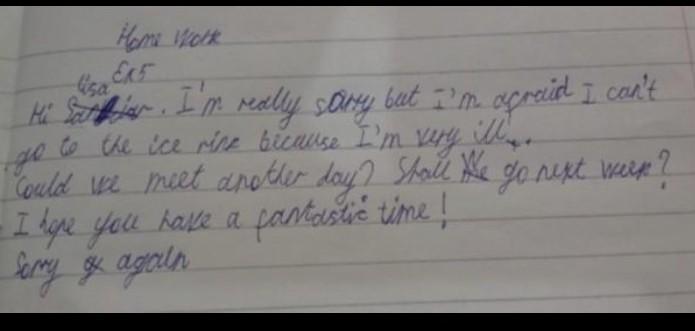 Home Work
Ex5
Lisa
Hi . I'm really sorry but I'm afraid I can't
go to the ice rink because I'm very ill...
Could we meet another day? Shall We go next week?
I hope you have a fantastic time!
Sorry again